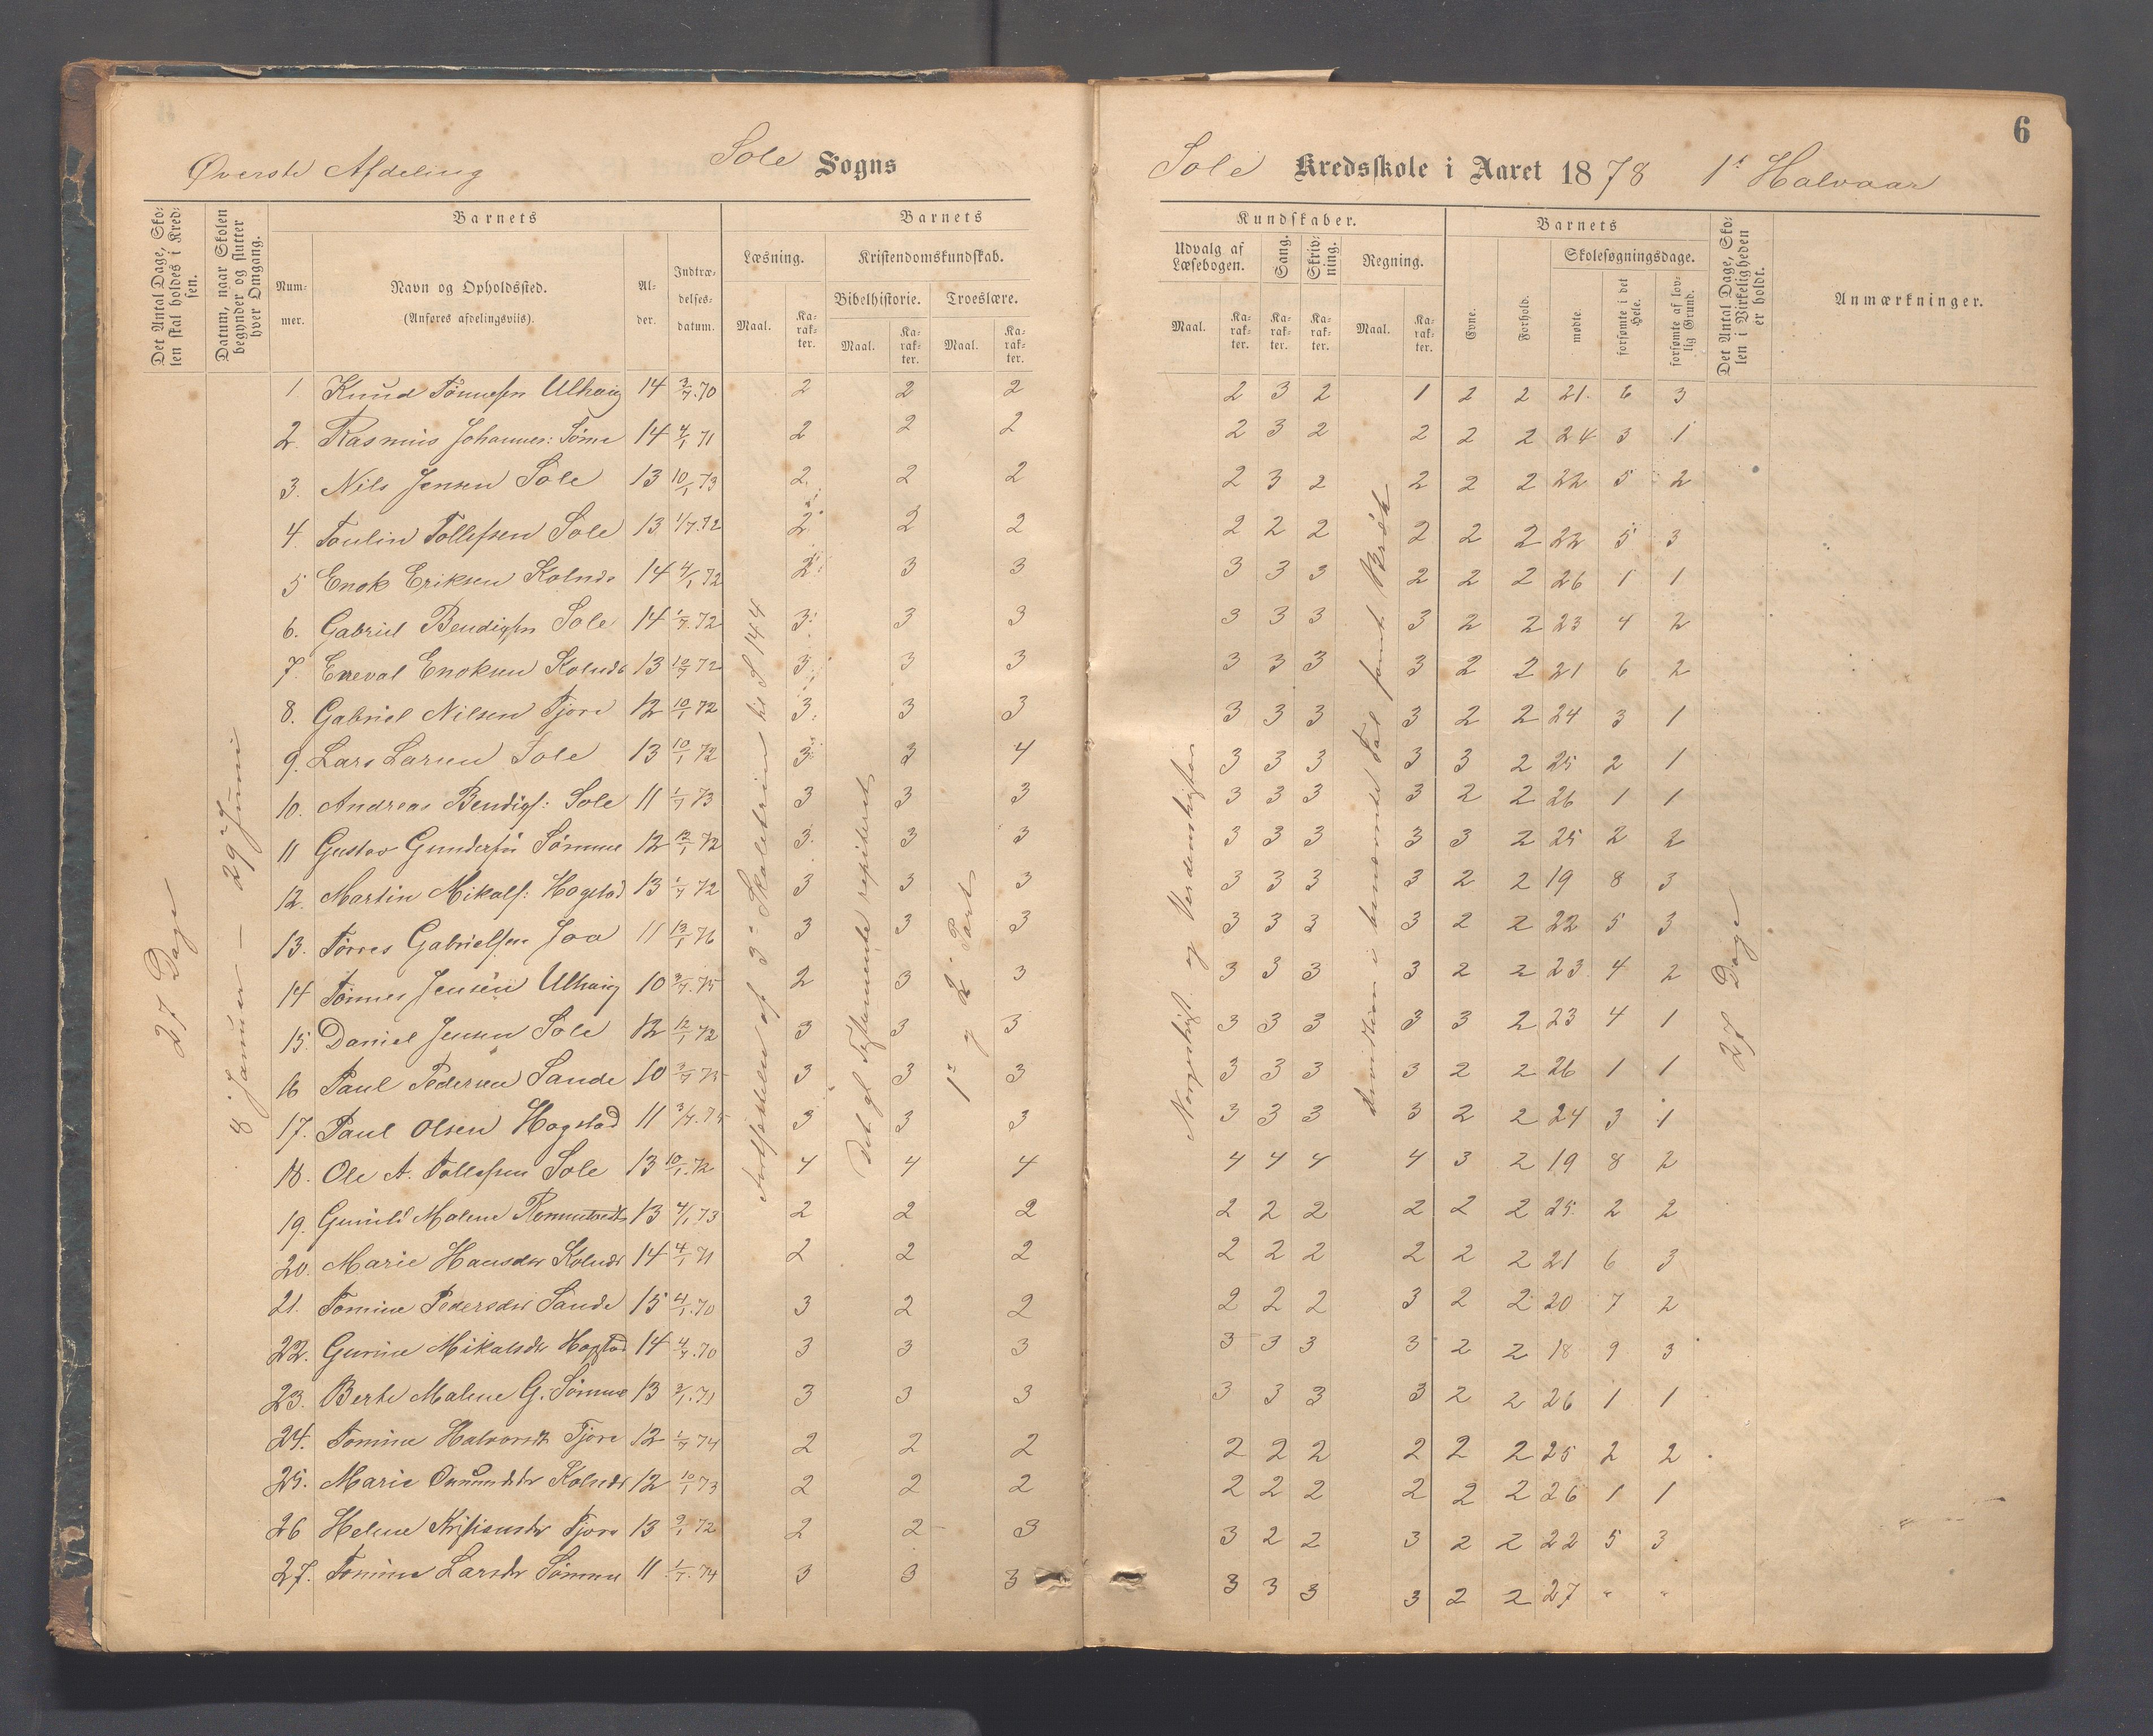 6
Øverste Afdeling Sole Sogns
Sole Kredsskole i Aaret 1878 1ste Halvaar
Det Antal Dage, Skolen skal holdes i Kredsen.
Datum, naar Skolen begynder og slutter hver Omgang.
Barnets
Nummer.
Navn og Opholdssted.
(Anføres afdelingsviis).
Alder.
Indtrædelsesdatum.
Barnets
Læsning.
Kristendomskundskab.
Bibelhistorie. Troeslære.
Maal. Karakter. Maal. Karakter. Maal. Karakter.
Kundskaber.
Udvalg af Læsebogen. Sang. Skrivning. Regning.
Maal. Karakter. Karakter. Karakter. Maal. Karakter.
Barnets
Evne. Forhold.
Skolesøgningsdage.
mødte. forsømte i det Hele. forsømte af lovlig Grund.
Det Antal Dage, Skolen i Virkeligheden er holdt.
Anmærkninger.
27 Dage
8 Januar — 29 Juni
Det gl. Testamente repeteret
1ste og 2den Part
27 Dage
1 Knud Tønnesen Ulhaug 14 3/7.70 2 2 2 2 3 2 1 2 2 21 6 3
2. Rasmus Johannes: Sømme 14 4/1 71 2 2 2 2 3 2 2 2 2 24 3 1
3. Nils Jensen Sole 13 10/1.73 2 2 2 2 3 2 2 2 2 22 5 2
4. Toulin Tollefsen Sole 13 1/7.72 2 2 2 2 2 2 2 2 2 22 5 3
5 Enok Eriksen Kolnes 14 4/1 72 2 3 3 3 3 3 2 2 2 26 1 1
6. Gabriel Bendigsen Sole 14 1/7.72 3 3 3 3 3 3 3 2 2 23 4 2
7. Eneval Enoksen Kolnes 13 10/7 72 3 3 3 3 3 3 3 2 2 21 6 2
8. Gabriel Nilsen Tjore 12 10/1 72 3 3 3 3 3 3 3 2 2 24 3 1
9. Lars Larsen Sole 13 10/1 72 3 3 4 3 3 3 3 3 2 25 2 1
10. Andreas Bendigs: Sole 11 1/7 73 3 3 3 3 3 3 3 2 2 26 1 1
11 Gustav Gundersen Sømme 12 12/1 72 3 3 3 3 3 3 3 3 2 25 2 2
12. Martin Mikals: Hogstad 13 1/7 72 3 3 3 3 3 3 3 2 2 19 8 3
13. Tørres Gabrielsen Joa 11 13/1 76 3 3 3 3 3 3 3 2 2 22 5 3
14 Tønnes Jensen Ulhaug 10 3/7.75 2 3 3 3 3 3 3 2 2 23 4 2
15. Daniel Jensen Sole 12 12/1 72 3 3 3 3 3 3 3 3 2 23 4 1
16 Paul Pedersen Sande 10 3/7 75 3 3 3 3 3 3 3 2 2 26 1 1
17. Paul Olsen Hogstad 11 3/7.75 3 3 3 3 3 3 3 2 2 24 3 1
18. Ole A. Tollefsen Sole 13 10/1.72 4 4 4 4 4 4 4 3 2 19 8 2
19. Gunild Malene 13 4/1 73 2 2 2 2 2 2 2 2 2 25 2 2
20. Marie Hansdtr Kolnes 14 4/1 71 2 2 2 2 2 2 2 2 2 21 6 3
21. Tomine Pedersdtr Sande 15 4/1.70 3 2 2 2 2 2 3 2 2 20 7 2
22. Gurine Mikalsdtr Hogstad 14 4/7.70 3 3 3 3 3 3 3 2 2 18 9 3
23. Berte Malene G. Sømme 13 3/1.71 3 3 3 3 3 3 3 2 2 26 1 1
24. Tomine Halvorsdtr Tjore 12 1/7 74 2 2 2 2 2 2 2 2 2 25 2 2
25. Marie Osmundsdtr Kolnes 12 10/1 73 2 2 2 2 2 2 2 2 2 26 1 1
26 Helene Kristiansdtr Tjore 13 9/1 72 2 2 3 3 2 2 3 2 2 22 5 3
27. Tomine Larsdtr Sømme 11 1/1.74 3 3 3 3 3 3 3 2 2 27 " "
Forfattelsen af 3die Skoletrin til S 144
Norgeshist. og Verdenshistorien
division i benævnte Tal samt Brøk